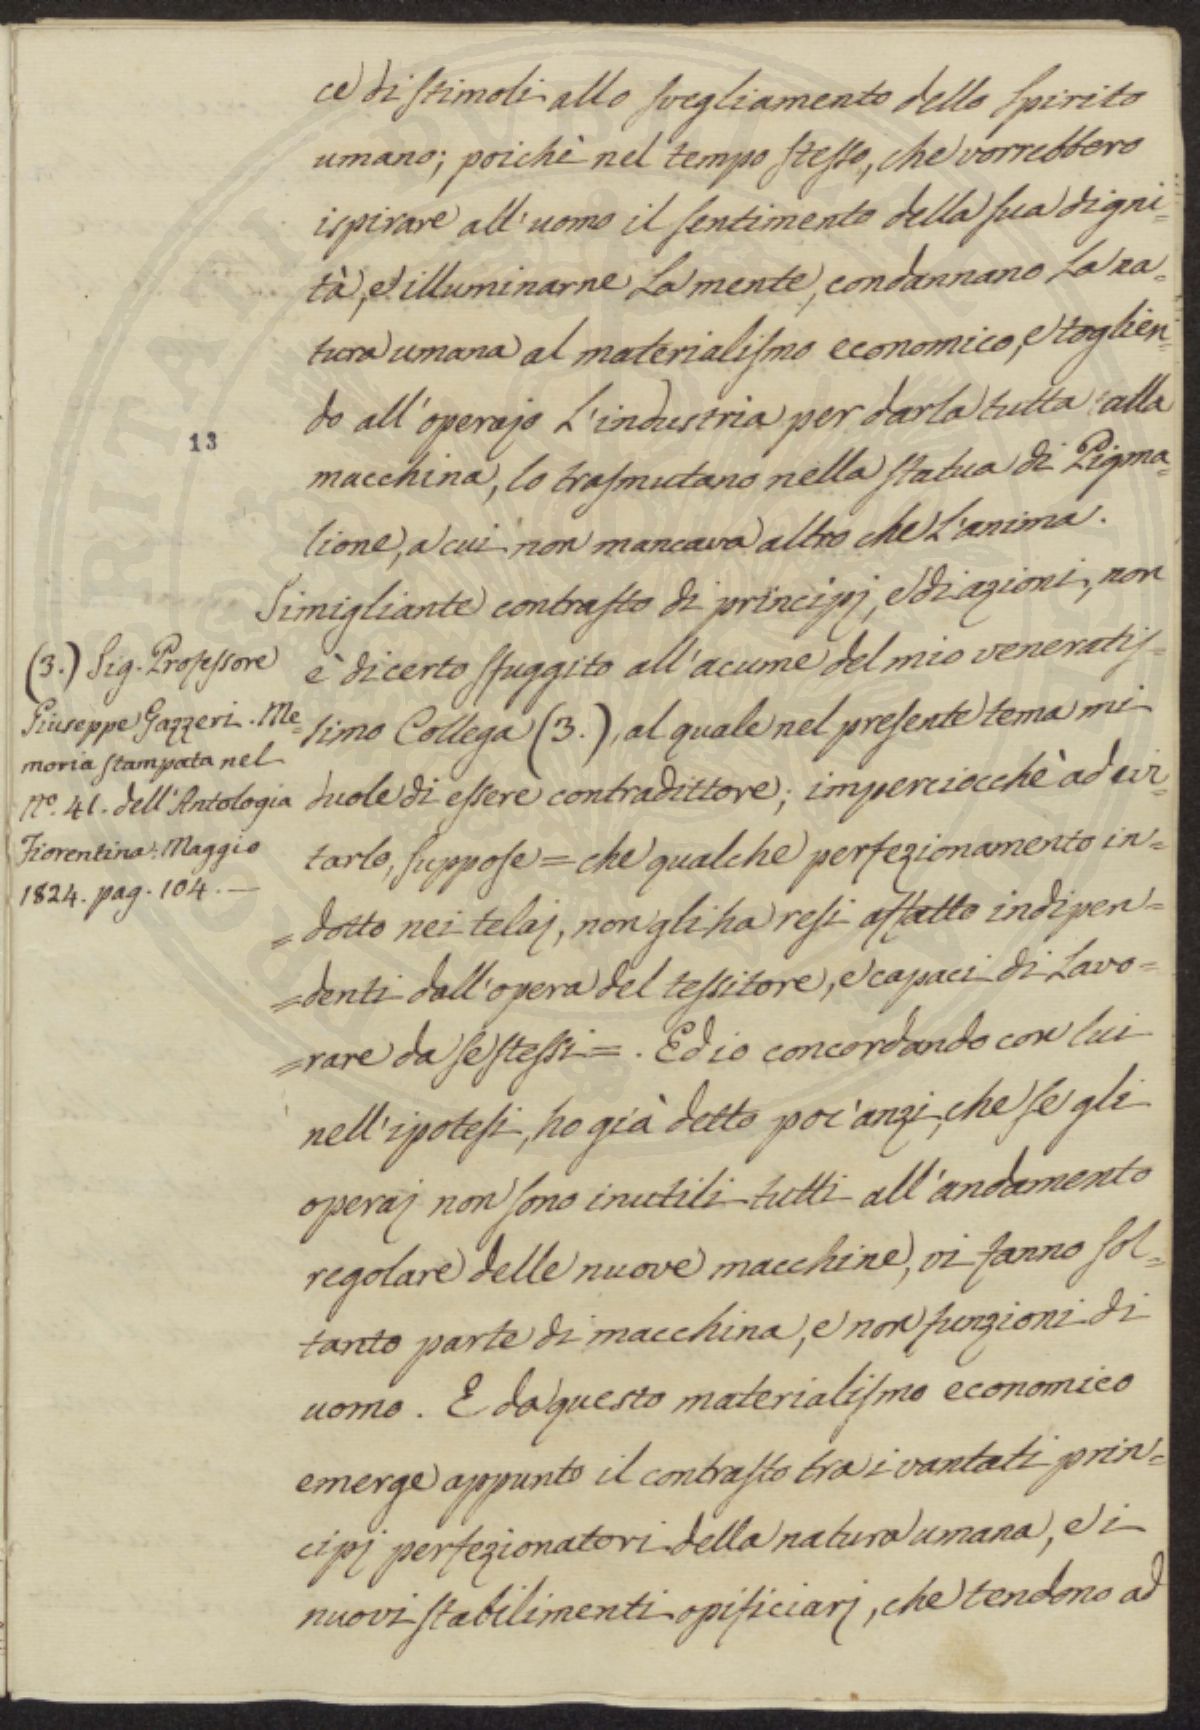 ce di stimoli allo svegliamento dello spirito
umano; poichè nel tempo stesso, che vorrebbero
ispirare all'uomo il sentimento della sua digni=
tà, e illuminarne la mente, condannano la na=
tura umana al materialismo economico, e toglien=
do all'operajo l'industria per darla tutta alla
macchina, lo trasmutano nella statua di Pigma=
lione, a cui non mancava altro che l'anima.
Simigliante contrasto di principj, e di azioni, non
è di certo sfuggito all'acume del mio veneratis=
simo Collega (3.), al quale nel presente tema mi
duole di essere contradittore; imperciocchè ad evi=
tarlo, suppose = che qualche perfezionamento in=
= dotto nei telaj, non gli ha resi affatto indipen=
= denti dall'opera del tessitore, e capaci di lavo=
= rare da se stessi =. Ed io concordando con lui
nell'ipotesi, ho già detto poc'anzi, che se gli
operaj non sono inutili tutti all'andamento
regolare delle nuove macchine, vi fanno sol=
tanto parte di macchina, e non funzioni di
uomo. E da questo materialismo economico
emerge appunto il contrasto tra i vantati prin=
cipj perfezionatori della natura umana, e i
nuovi stabilimenti opificiarj, che tendono ad
13
(3.) Sig. Professore
Giuseppe Gazzeri. Me=
moria stampata nel
N.º 41. dell'Antologia
Fiorentina. Maggio
1824. pag. 104. —